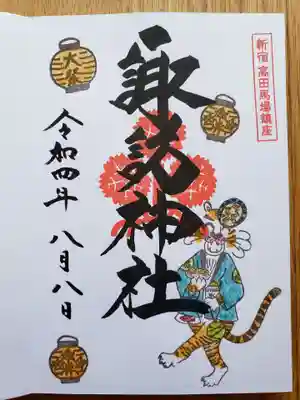 新宿 高田馬場鎮座
諏訪神社
大祭
令和四年 八月八日